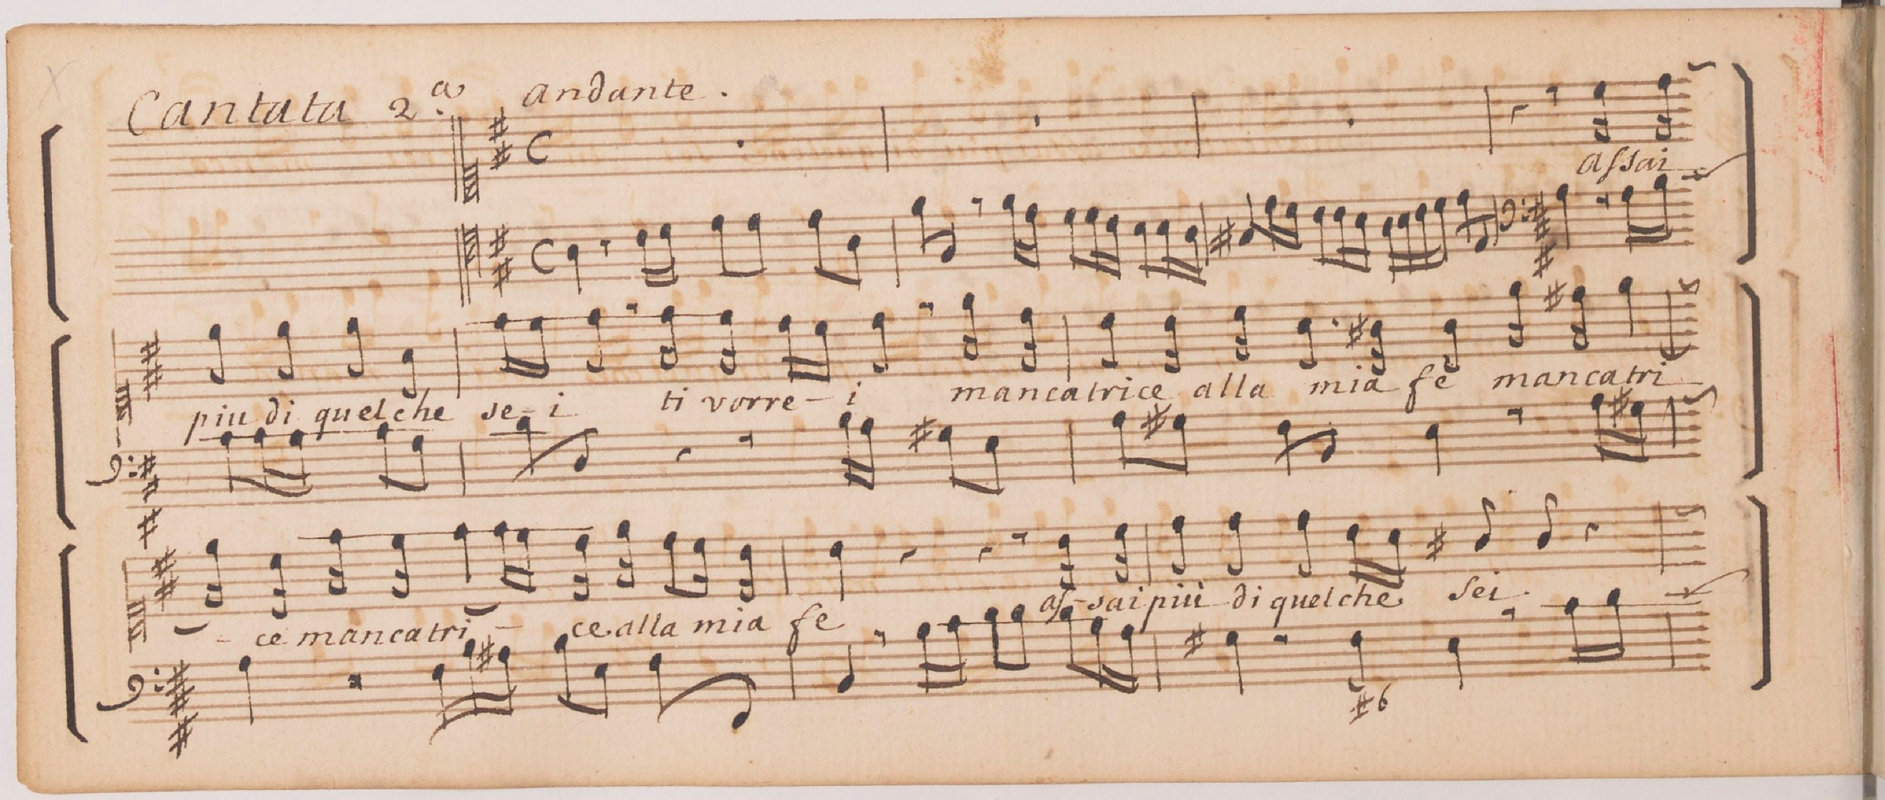 Cantata 2.a andante.
assai
piu di quel che se-i ti vorre-i mancatrice alla mia fe mancatri
-ce mancatri- ce alla mia fe as-sai più di quel che sei.
#6